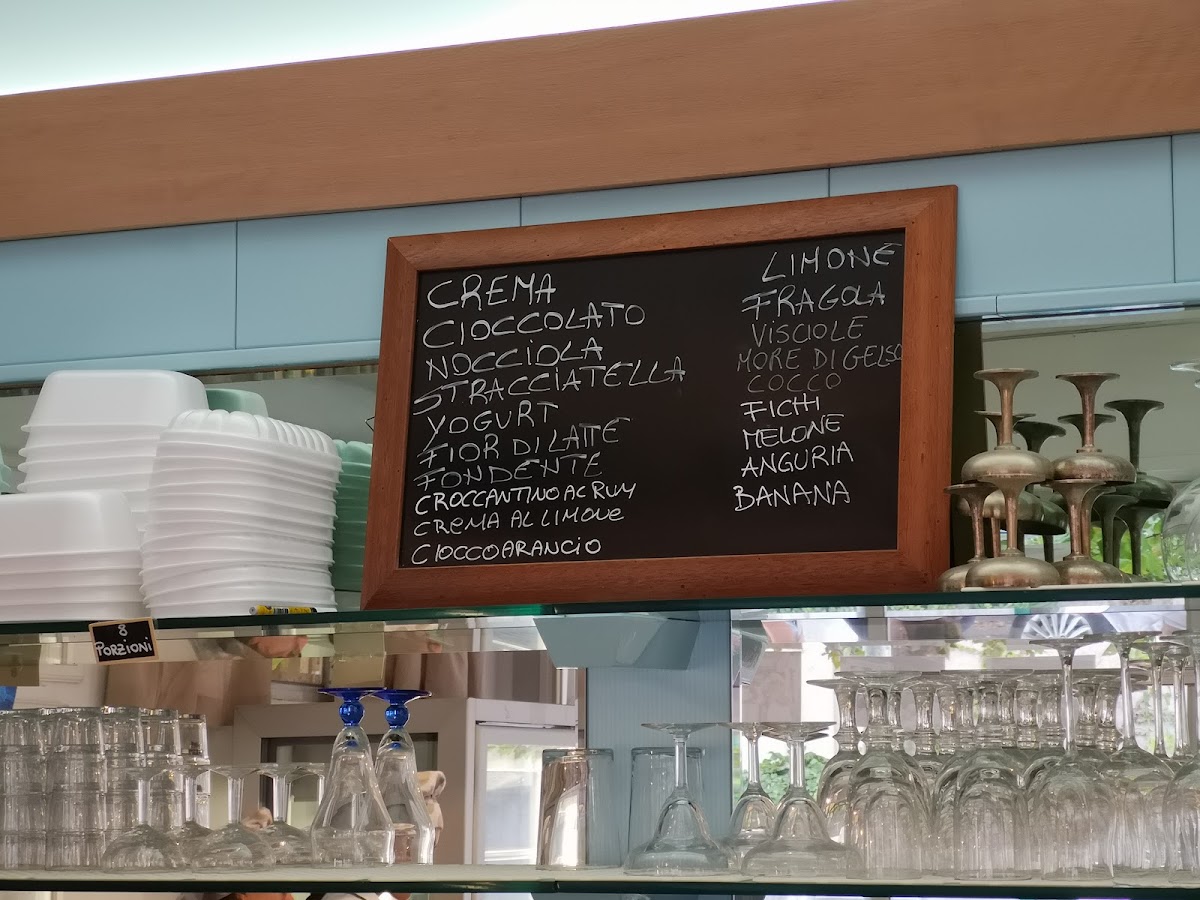 CREMA
CIOCCOLATO
NOCCIOLA
STRACCIATELLA
YOGURT
FIOR DI LATTE
FONDENTE
CROCCANTINO AC RUM
CREMA AL LIMONE
CIOCCOARANCIO
LIMONE
FRAGOLA
VISCIOLE
MORE DI GELSO
COCCO
FICHI
MELONE
ANGURIA
BANANA
8
PORZIONI